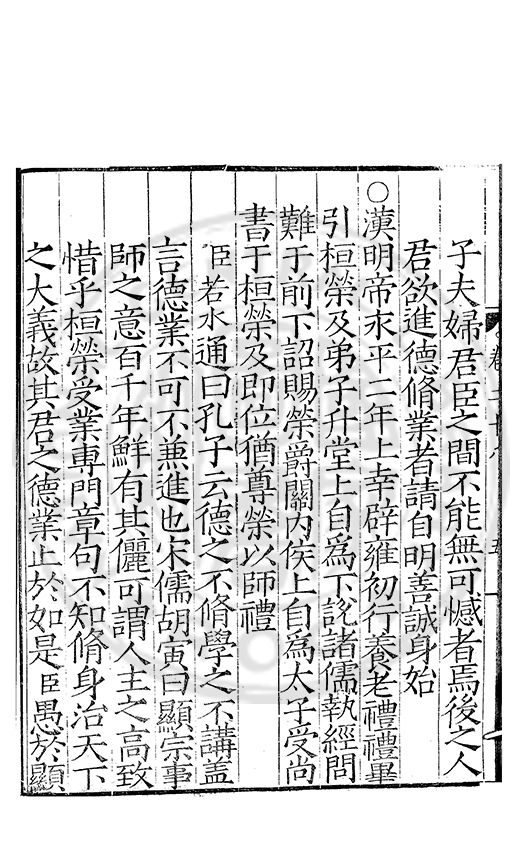 子夫婦君臣之間不能無可憾者焉後之人
君欲進德脩業者請自明善誠身始
○漢明帝永平二年上幸辟雍初行養老禮禮畢
引桓榮及弟子升堂上自爲下說諸儒執經問
難于前下詔賜榮爵關内侯上自爲太子受尚
書于桓榮及即位猶尊榮以師禮
臣若水通曰孔子云德之不脩學之不講盖
言德業不可不兼進也宋儒胡寅曰顯宗事
師之意百千年鮮有其儷可謂人主之高致
惜乎桓榮受業專門章句不知脩身治天下
之大義故其君之德業止於如是臣愚於顯